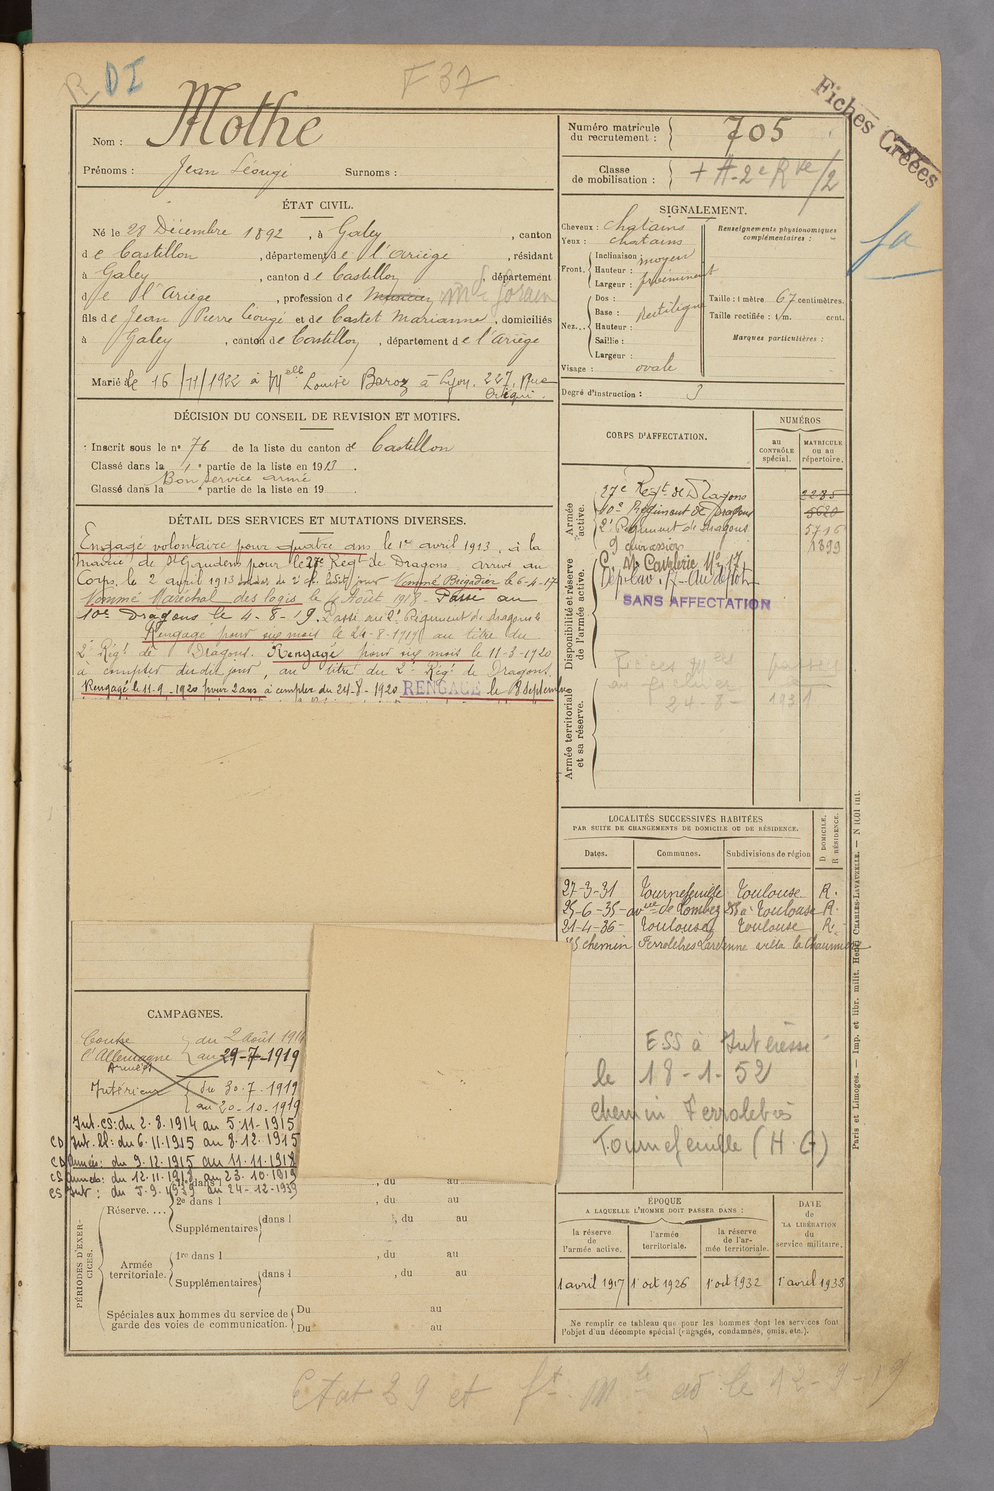 R DI
F 37
Fiches Créées
Nom : Mothe
Prénoms : Jean Surnoms :
Numéro matricule du recrutement : 705
Classe de mobilisation :
ÉTAT CIVIL.
Né le 28 Décembre 1892, à Galey, canton
de Castillon, département de l'Ariège, résidant
à Galey, canton de Castillon, département
de l'Ariège, profession de
fils de Jean Pierre et de Castet Marianne, domiciliés
à Galey, canton de Castillon, département de l'Ariège
Marié le 16/11/1922 à Melle Louise Baroz à Lyon. 227, Rue
SIGNALEMENT.
Cheveux : chatains
Yeux : chatains
Front. Inclinaison : moyen
Hauteur : proéminent
Largeur :
Nez... Dos : Rectiligne
Base :
Hauteur :
Saillie :
Largeur :
Visage : ovale
Renseignements physionomiques complémentaires :
Taille : 1 mètre 67 centimètres.
Taille rectifiée : 1/m. cent.
Marques particulières :
Degré d'instruction : 3
DÉCISION DU CONSEIL DE REVISION ET MOTIFS.
Inscrit sous le no 76 de la liste du canton de Castillon
Classé dans la partie de la liste en 1913.
Bon service armé
Classé dans la partie de la liste en 19
DÉTAIL DES SERVICES ET MUTATIONS DIVERSES.
Engagé volontaire pour quatre ans le 1er avril 1913, à la
mairie de St Gaudens pour le 27e Regt de Dragons arrivé au
Corps, le 2 avril 1913 soldat de 2e cl. ledit jour Nommé Brigadier le 6-4-17
Nommé Maréchal des logis le Août 1918 - Passé au
10e Dragons le 4-8-19. Passé au 2e Régiment de dragons
Rengagé pour six mois le 24-8-1919 au titre du
2e Régt de Dragons. Rengagé pour six mois le 11-3-1920
à compter dudit jour, au titre du 2e Régt de Dragons
Rengagé le 11-9-1920 pour 2 ans à compter du 24-8-1920 RENGAGÉ le
CORPS D'AFFECTATION.
NUMÉROS
au CONTRÔLE spécial.
MATRICULE ou au répertoire.
Armée active.
27e Regt de Dragons 2285
10e Régiment de Dragons 5620
2e Régiment de Dragons 5796
9 cuirassiers 1899
Disponibilité et réserve de l'armée active.
Cavalerie No 17
SANS AFFECTATION
Armée territoriale et sa réserve.
24-8-1931
LOCALITÉS SUCCESSIVES HABITÉES
PAR SUITE DE CHANGEMENTS DE DOMICILE OU DE RÉSIDENCE.
Dates. Communes. Subdivisions de région D DOMICILE. R RÉSIDENCE.
27-3-31 Tournefeuille Toulouse R.
25-6-35 avue de Lombez à Toulouse R.
21-4-36 Toulouse Toulouse R.
chemin Ferrolebès Lardenne villa la Chaumière
ESS à Intéressé
le 18-1-52
chemin Ferrolebès
Tournefeuille (H. G)
CAMPAGNES.
Contre l'Allemagne du 2 août 1914
au 29-7-1919
Armées
Intérieur du 30.7.1919
au 20-10-1919
Int. CS: du 2.8.1914 au 5.11.1915
CD Int. : du 6.11.1915 au 8.12.1915
CD Armées: du 9.12.1915 au 11.11.1918
CS Armées: du 12.11.1918 au 23.10.1919
CS Int : du 5.9.1939 au 24-12-1939
PÉRIODES D'EXERCICES.
Réserve.... 1re dans l , du au
2e dans l , du au
Supplémentaires dans l , du au
Armée territoriale. 1re dans l , du au
Supplémentaires dans l , du au
Spéciales aux hommes du service de garde des voies de communication. Du au
Du au
ÉPOQUE
A LAQUELLE L'HOMME DOIT PASSER DANS :
la réserve de l'armée active.
l'armée territoriale.
la réserve de l'armée territoriale.
DATE de LA LIBÉRATION du service militaire.
1 avril 1917 1er oct 1926 1er oct 1932 1er avril 1938
Ne remplir ce tableau que pour les hommes dont les services font l'objet d'un décompte spécial (engagés, condamnés, omis, etc.).
Paris et Limoges. — Imp. et libr. milit. Henri CHARLES-LAVAUZELLE.
Etat 29 et le 12-9-19